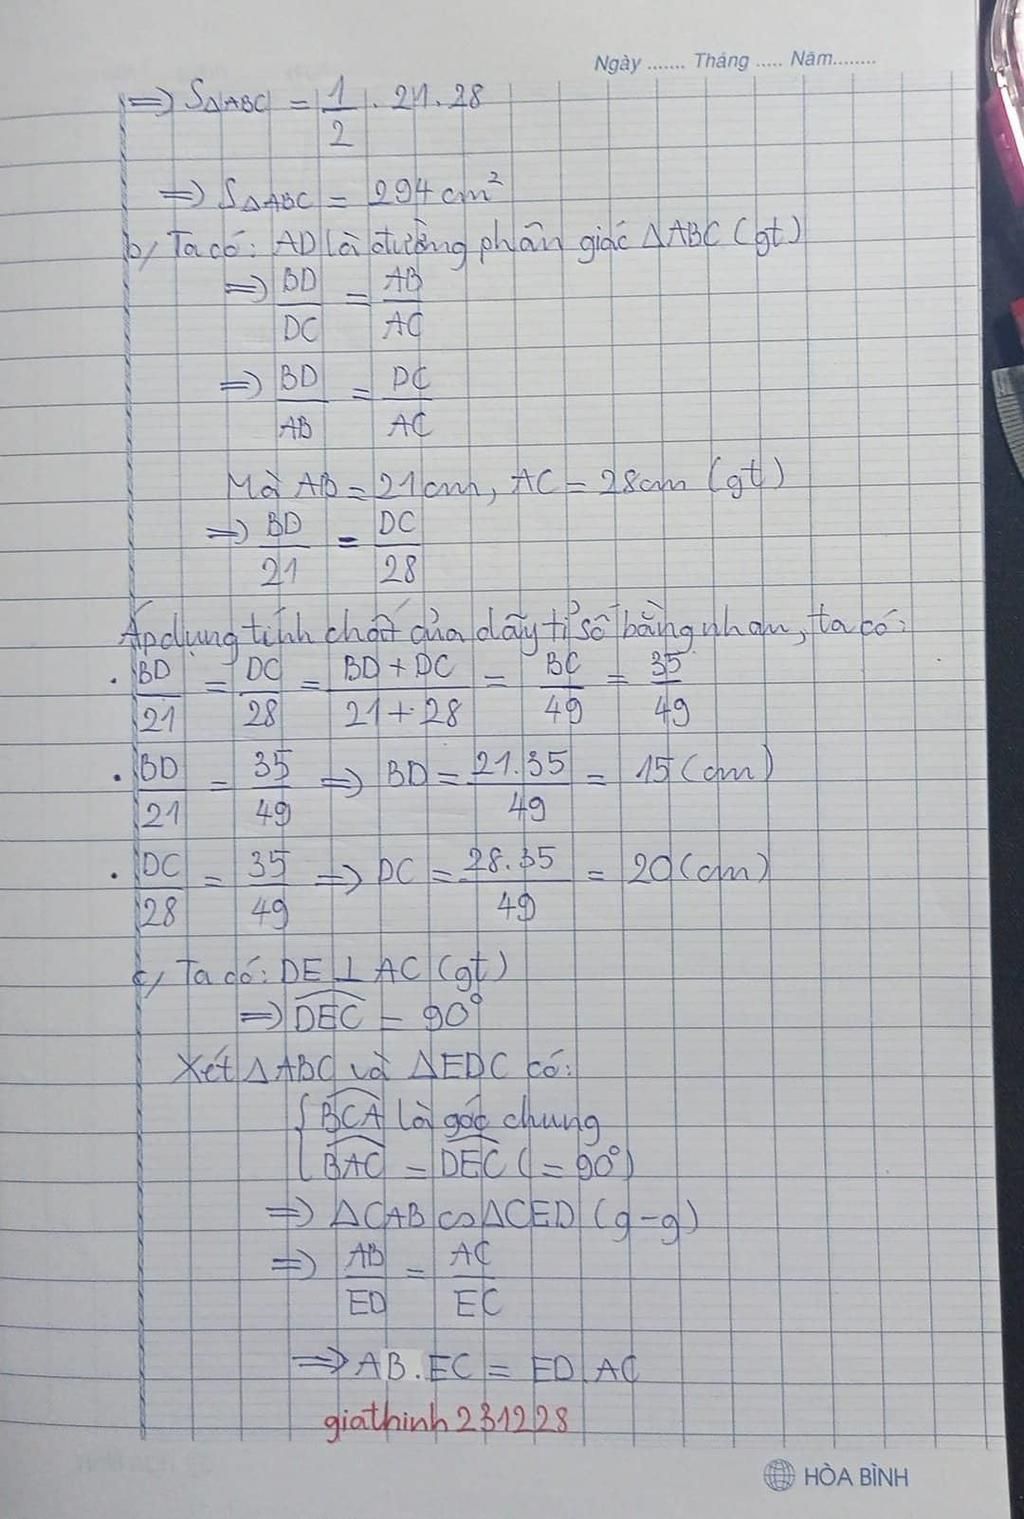 Ngày ....... Tháng ..... Năm........
=> S△ABC = 1/2 . 21 . 28
=> S△ABC = 294 cm²
b, Ta có: AD là đường phân giác △ABC (gt)
=> BD/DC = AB/AC
=> BD/AB = DC/AC
Mà AB = 21cm, AC = 28cm (gt)
=> BD/21 = DC/28
Áp dụng tính chất của dãy tỉ số bằng nhau, ta có:
. BD/21 = DC/28 = BD + DC/21 + 28 = BC/49 = 35/49
. BD/21 = 35/49 => BD = 21.35/49 = 15 (cm)
. DC/28 = 35/49 => DC = 28.35/49 = 20 (cm)
c, Ta có: DE ⊥ AC (gt)
=> DEC = 90°
Xét △ABC và △EDC có:
{ BCA là góc chung
BAC = DEC (= 90°)
=> △CAB ∽ △CED (g-g)
=> AB/ED = AC/EC
=> AB . EC = ED . AC
giathinh231228
HÒA BÌNH